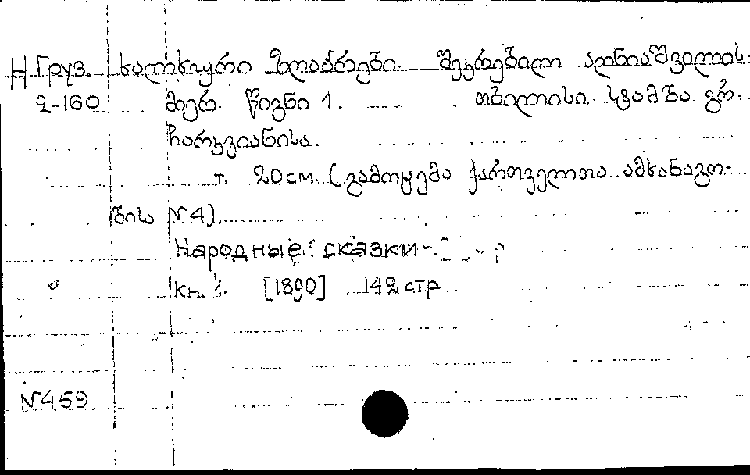 Н Груз. ხალხური ზღაპრები. შეკრებილ აღნიაშვილის
2-160 მიერ. წიგნი 1. თბილისი. სტამბა გრ.
ჩარკვიანისა.
т. 20 см. (გამოცემა ქართველთა ამხანაგო-
ბის №4)
Народные сказки
кн. 1. [1890] 142 стр
№459